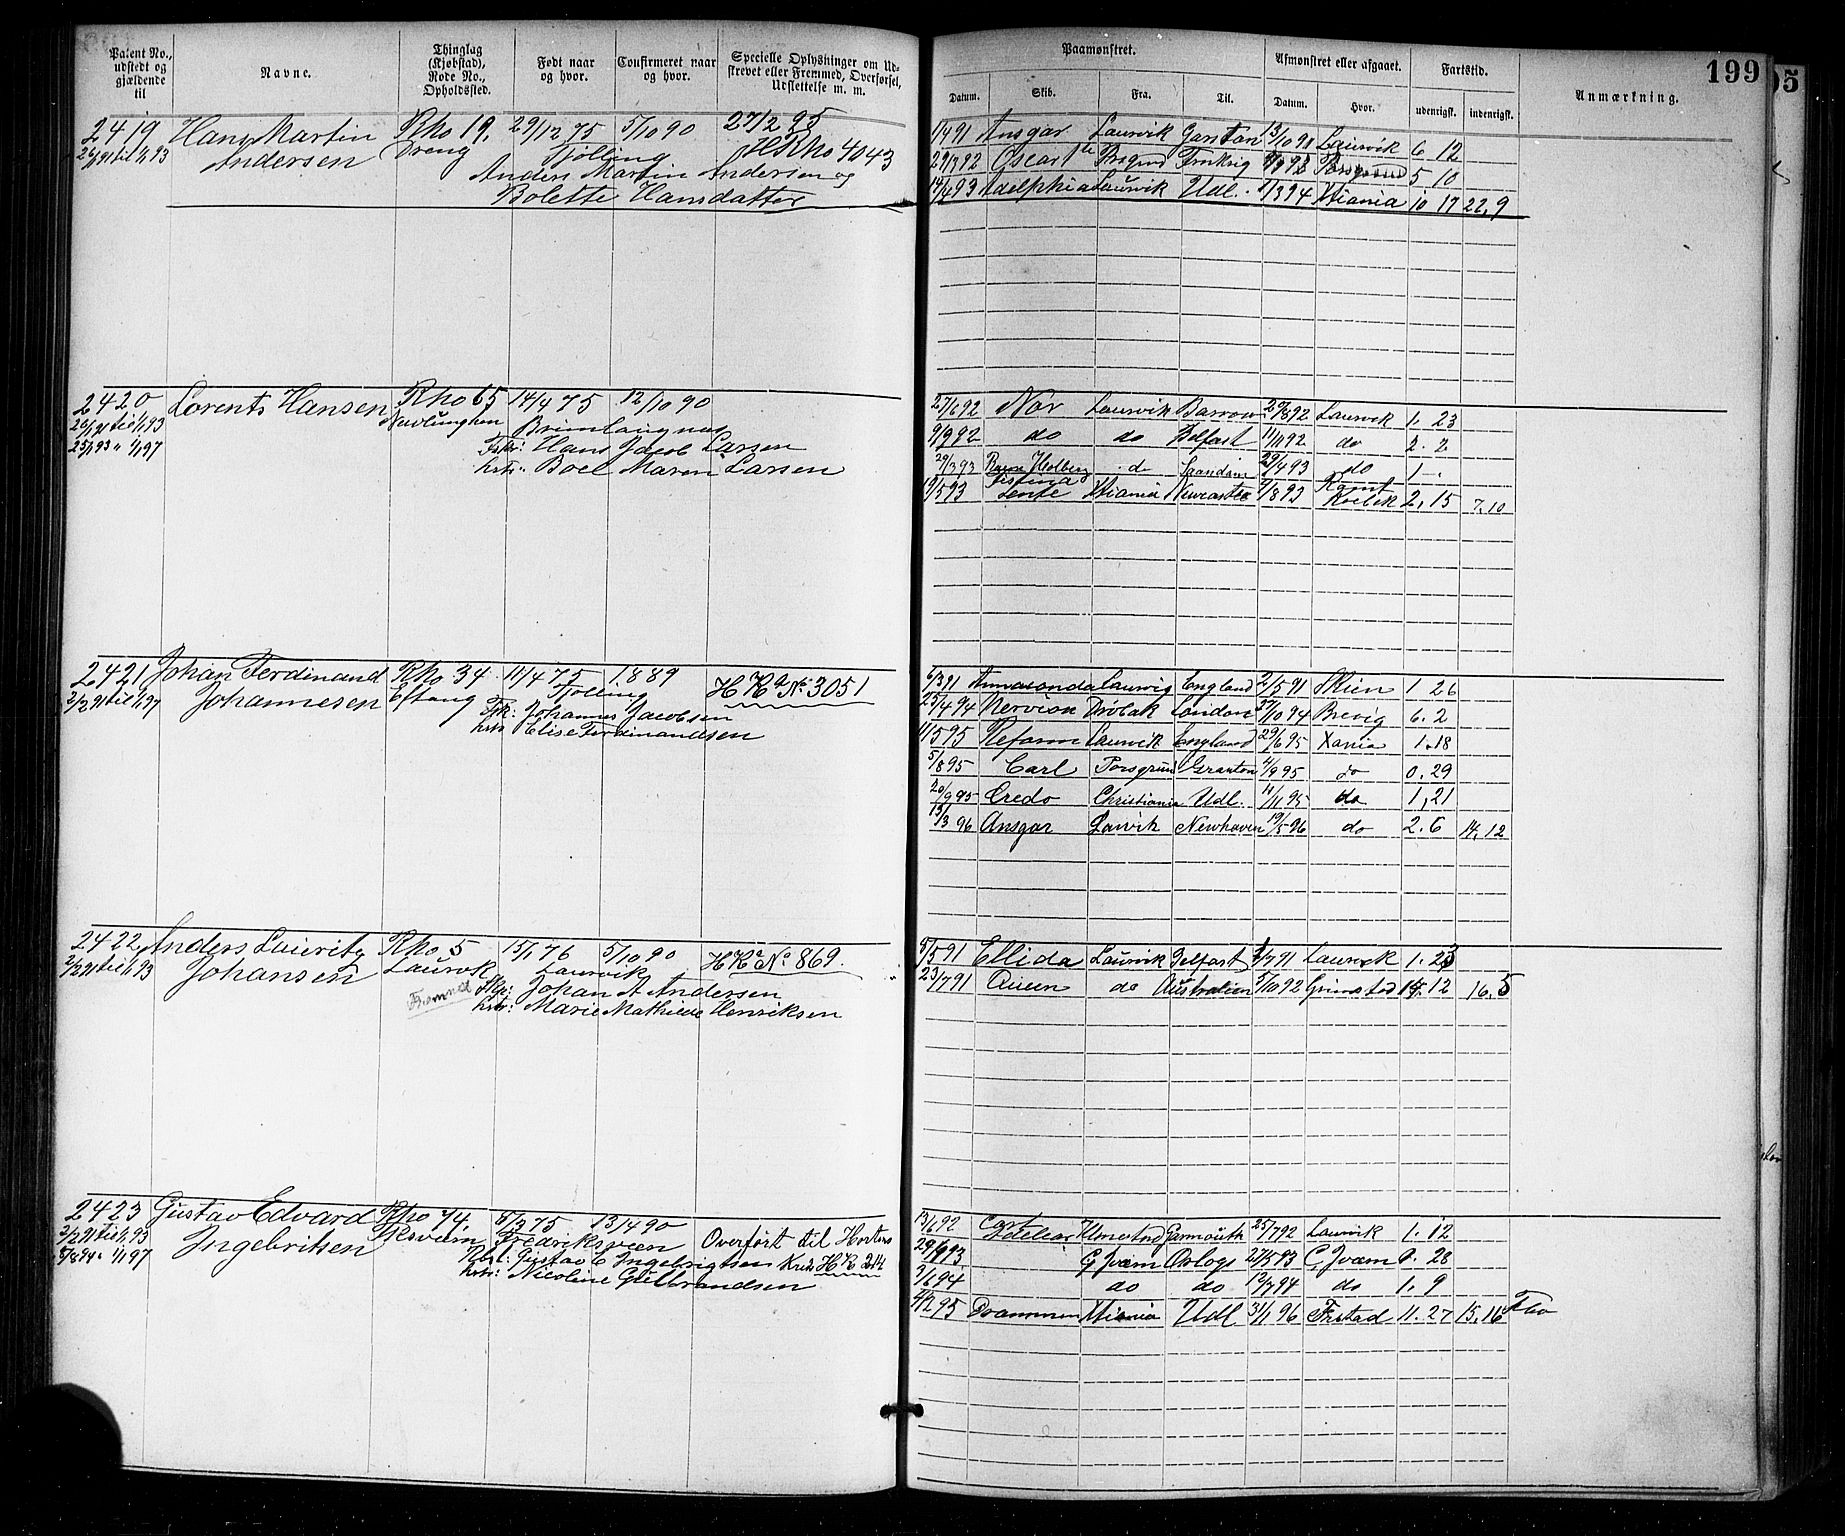 199
Patent No., udstedt og gjældende til
Navne.
Thinglag (Kjøbstad), Rode No., Opholdssted.
Født naar og hvor.
Confirmeret naar og hvor.
Specielle Oplysninger om Udskrevet eller Fremmed, Overførsel, Udslettelse m. m.
Paamønstret.
Datum. Skib. Fra. Til.
Afmønstret eller afgaaet.
Datum. Hvor.
Fartstid.
udenrigsk. indenrigsk.
Anmærkning.
2419 Hans Martin Rho 19, 29/12 75 5/10 90 27/2 95
Andersen Dreng Tjølling H Rho 4043
Anders Martin Andersen og
Bolette Hansdatter
1/4 91 Ansgar Laurvik Garston Laurvik 6 12
29/3 92 Oscar 1ste Porsgrund Porsgrund 5 10
Adelphia Laurvik Udl. 1/3 94 Xtiania 10 17 22,9
2420 Lorents Hansen Rho 65 14/4 75 12/10 90
Nevlunghen Brunlangnæs
Fskr: Hans Jacob Larsen
hstr: Boel Maren Larsen
27/6 92 Nor Laurvik Barrow 20/8 92 Laurvik 1. 23
9/9 92 do do Belfast 11/11 92 do 2. 2
29/3 93 Baron Holberg do Saandam 29/4 93 do 1 -
19/5 93 Festina lente Xtiania Newcastle 7/8 93 2,15 7,10
2421 Johan Ferdinand Rho 34 11/4 75 1889
2/2 91 til 1/1 97 Johannesen Eftang Tjølling H Ka No 3051
Fskr: Johannes Jacobsen
hstr: Elise Ferdinandsen
6/3 91 Laurvig England 2/5 91 Skien 1 26
25/4 94 Nervion Drøbak London 27/10 94 Brevig 6. 2
1/5 95 Reform Laurvik England 29/6 95 Xania 1.18
5/8 95 Carl Porsgrund Granton 4/9 95 do 0. 29
20/9 95 Credo Christiania Udl. 11/11 95 do 1,21
13/3 96 Ansgar Larvik Newhaven 19/5 96 do 2. 6 14,12
2422 Anders Lauritz Rho 5 15/1 76 5/10 90
2/2 91 til 1/1 93 Johansen Laurvik Laurvik H Ka No 869.
Fremmed Fskr: Johan A Andersen
hstr: Marie Mathilde Henriksen
5/5 91 Ellida Laurvik Belfast 1/7 91 Laurvik 1. 23
23/7 91 Queen do Australien 5/10 92 Grimstad 14.12 16,5
2423 Gustav Edvard Rho 74. 6/3 75 13/4 90
2/2 91 til 1/1 93 Ingebritsen Fredriksværn Overført til Hortens
1/1 97 Gustav E Ingebrigtsen Kreds H K 214
hstr: Nicoline Gulbrandsen
13/6 92 Cort Adelaer Yarmouth 25/7 92 Laurvik 1. 12
29/4 93 G Jværn Orlogs 27/5 93 G Jværn 0. 28
3/6 94 do do 12/7 94 do 1. 9
4/2 95 Drammen Xtiania Udl 31/1 96 Frstad 11. 27 15,16